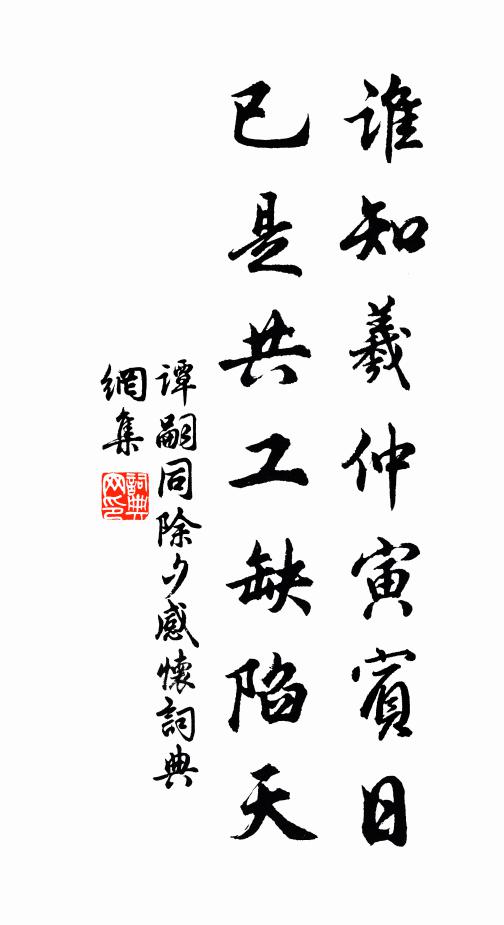 谁知羲仲寅賓日
已是共工缺陷天
谭嗣同除夕感懷詞典
網集
詞典
网印